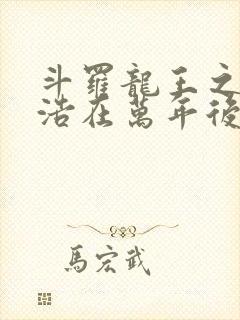 斗羅龍王之
浩在萬年後
馬宏武